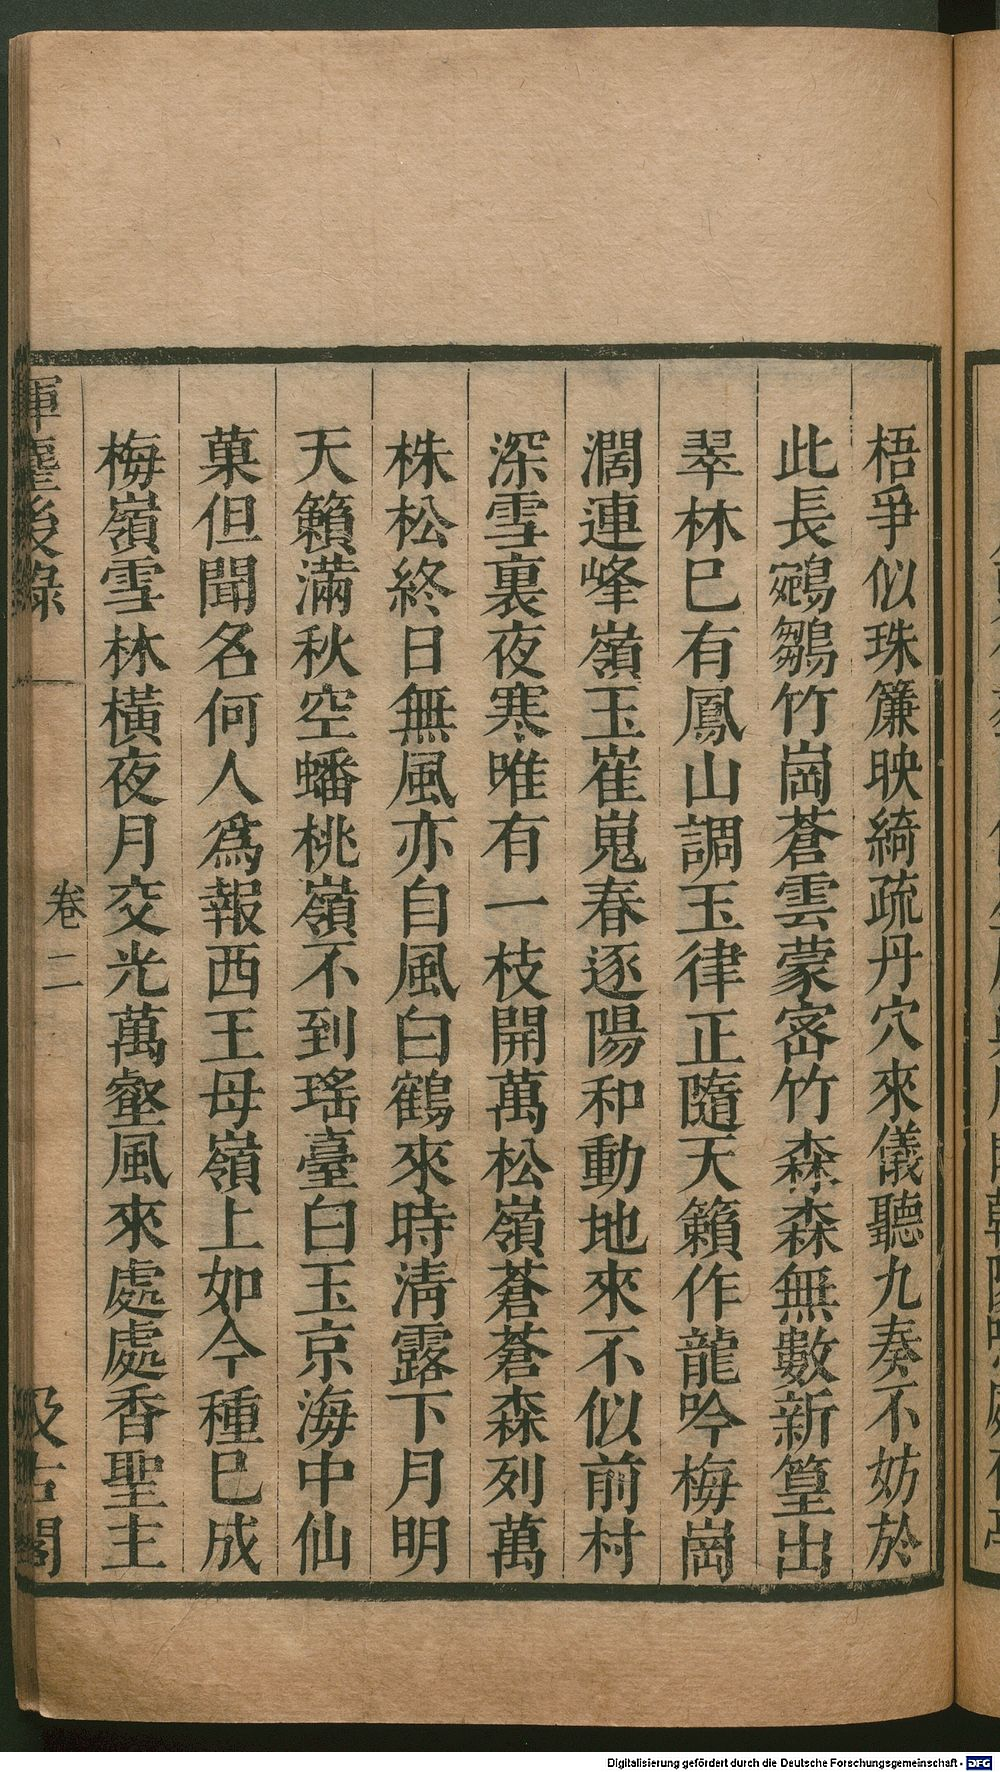 梧爭似珠簾映綺疏丹穴來儀聽九奏不妨於
此長鵷鶵竹崗蒼雲蒙密竹森森無數新篁出
翠林巳有鳳山調玉律正隨天籟作龍吟梅崗
濶連峰嶺玉崔嵬春逐陽和動地來不似前村
深雪裏夜寒唯有一枝開萬松嶺蒼蒼森列萬
株松終日無風亦自風白鶴來時清露下月明
天籟滿秋空蟠桃嶺不到瑤臺白玉京海中仙
菓但聞名何人爲報西王母嶺上如今種巳成
梅嶺雪林橫夜月交光萬壑風來處處香聖主
揮麈後錄
卷二
汲古閣
Digitalisierung gefördert durch die Deutsche Forschungsgemeinschaft - DFG